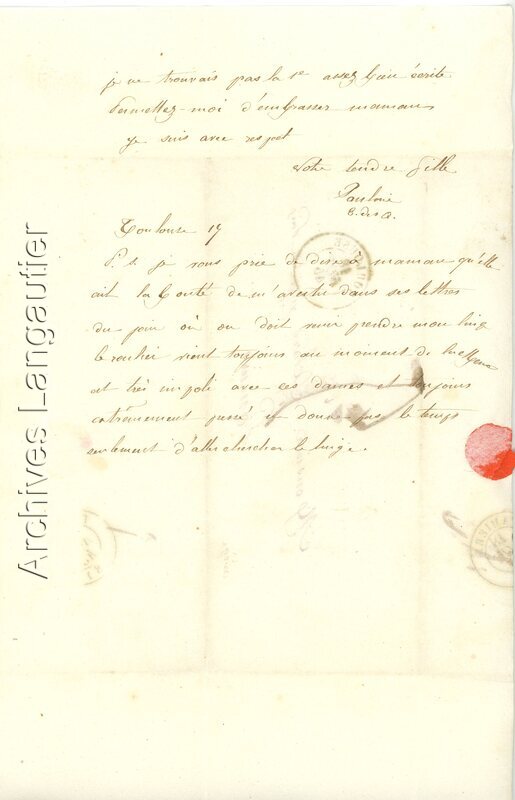 je ne trouvais pas la 1e assez bien écrite
Permettez-moi d'embrasser maman
je suis avec respect
votre tendre fille
Pauline
Toulouse 17
P. s. je vous prie de dire à maman qu'elle
ait la bonté de m'avertir dans ses lettres
du jour où on doit venir prendre mon linge
le roulier vient toujours au moment de la
est très impoli avec ces dames et toujours
extrêmement pressé donne pas le temps
seulement d'aller chercher le linge.
Archives Langautier